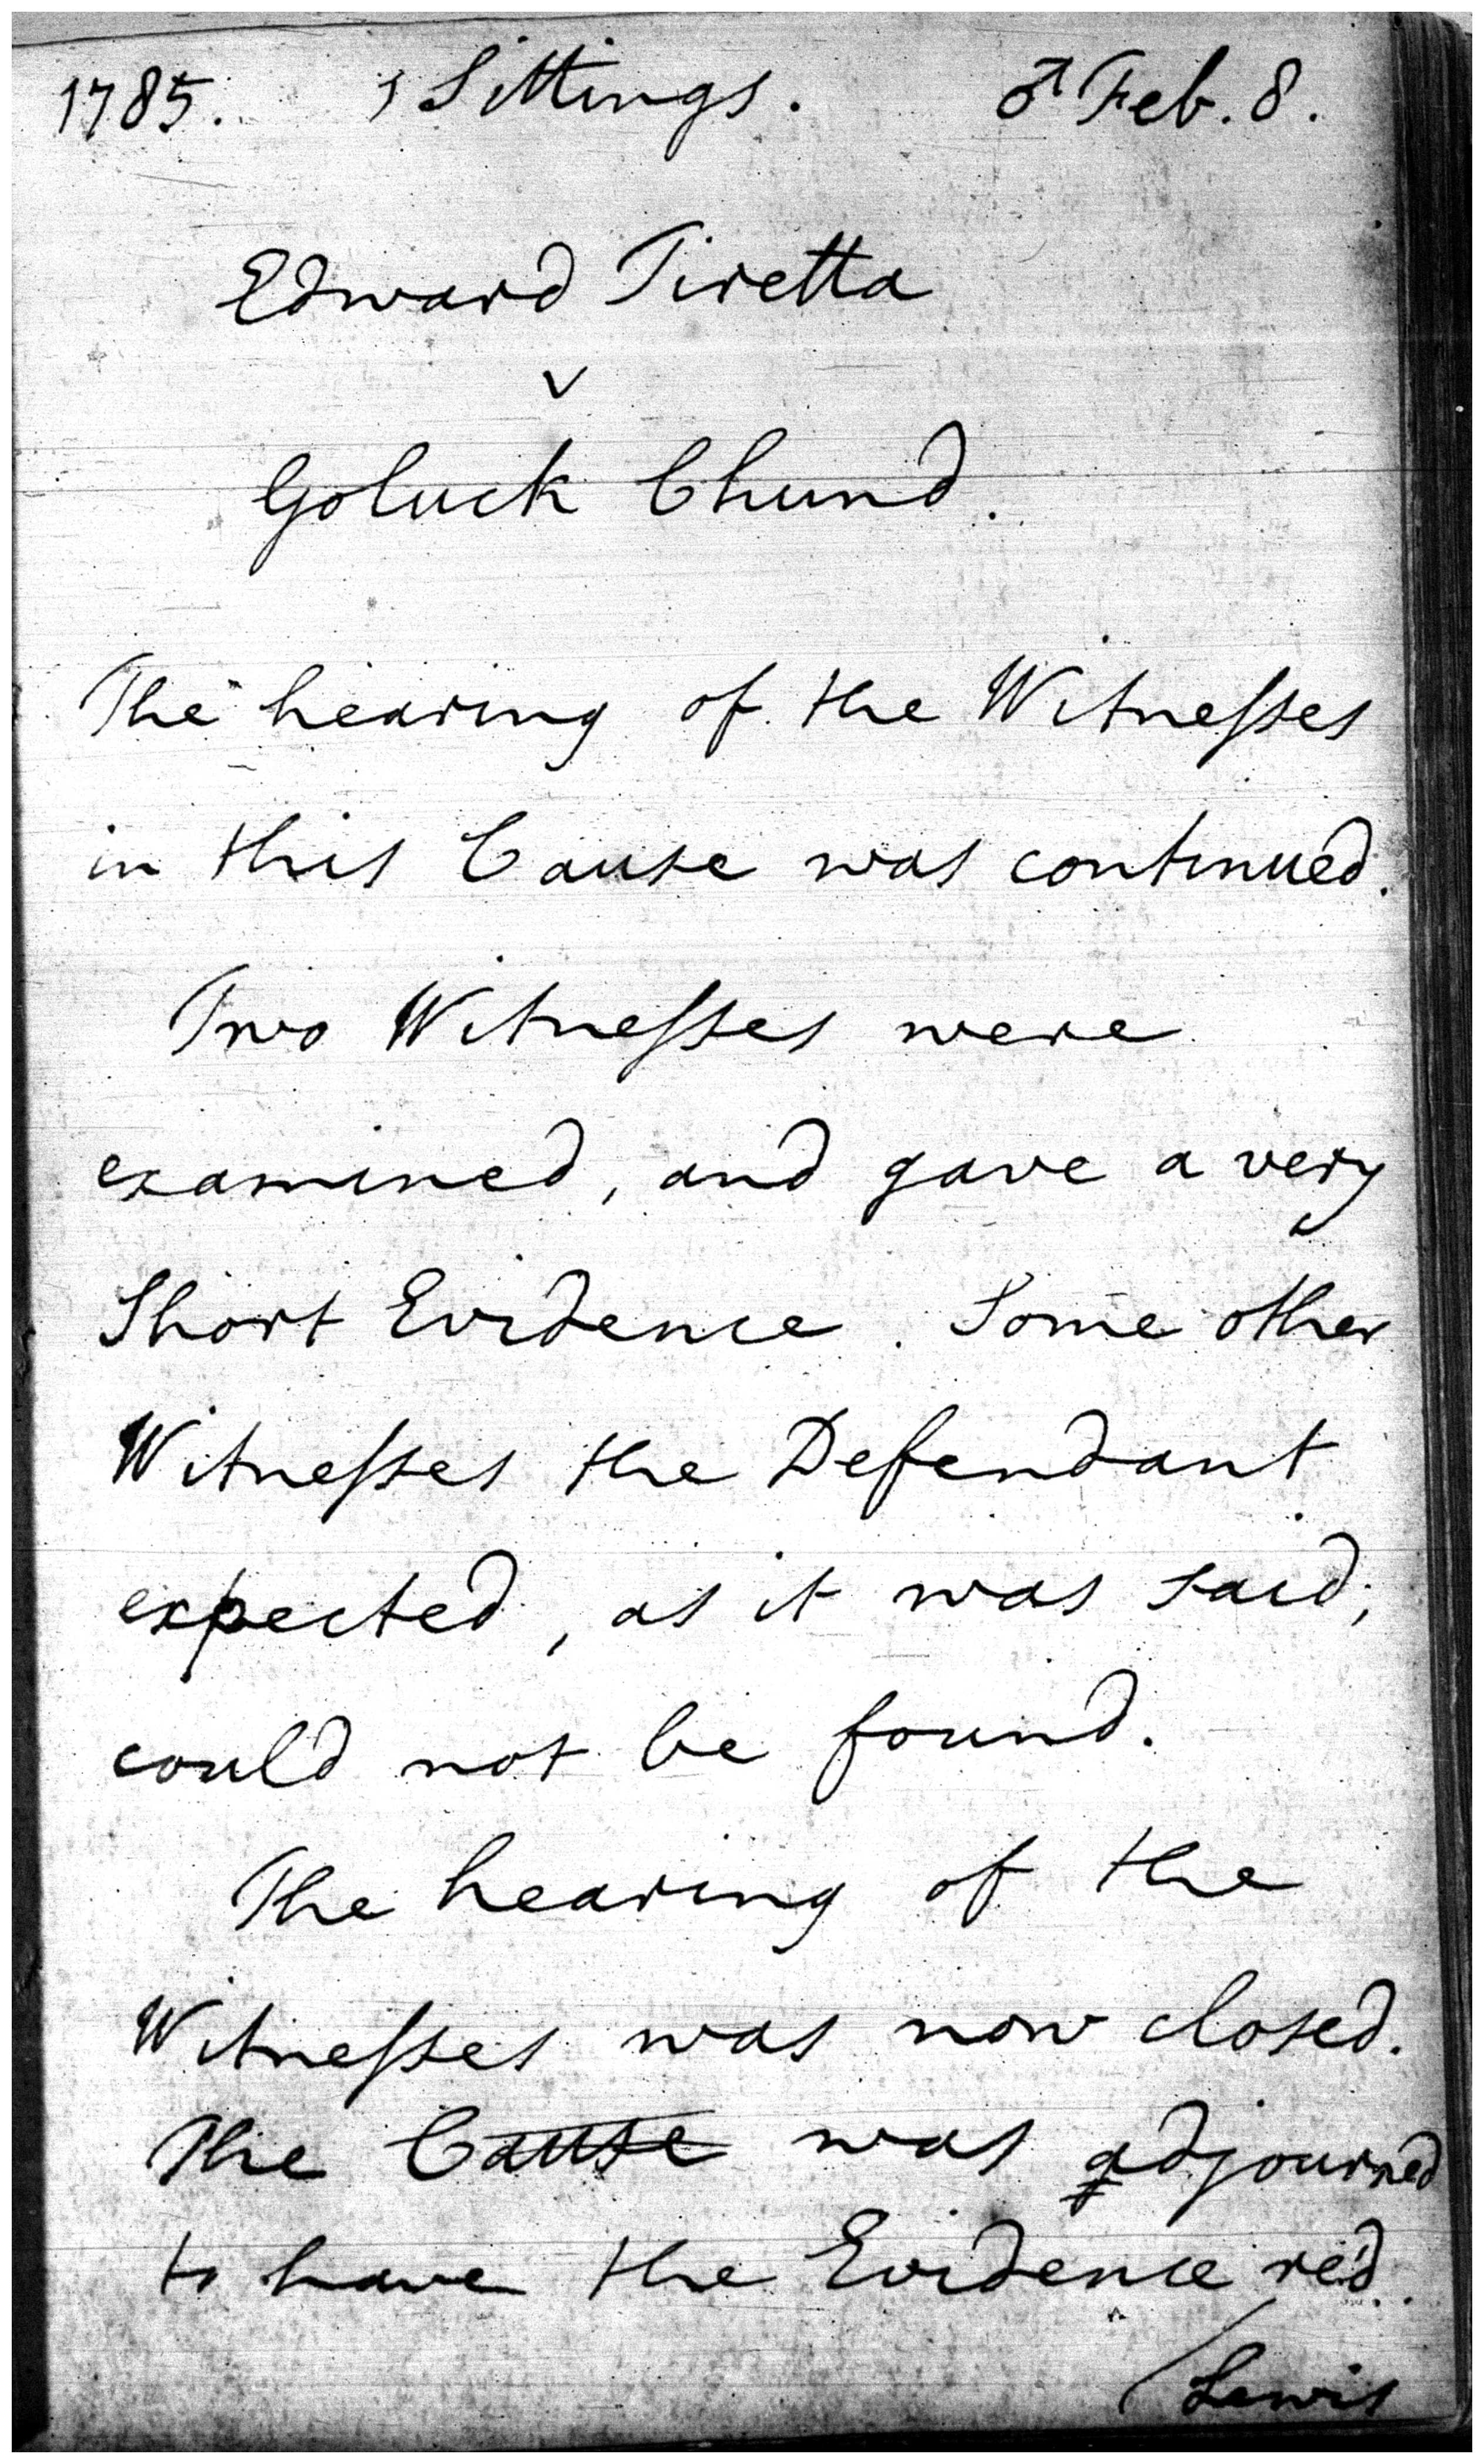 1785. 3 Sittings. ♂ Feb. 8.
Edward Tiretta
v
Goluck Chund.
The hearing of the Witneſses
in this Cause was continued.
Two Witneſses were
examined, and gave a very
Short Evidence. Some other
Witneſses the Defendant
expected, as it was said,
could not be found.
The hearing of the
Witneſses was now closed.
The Cause was adjourned
to have the Evidence red.
Lewis